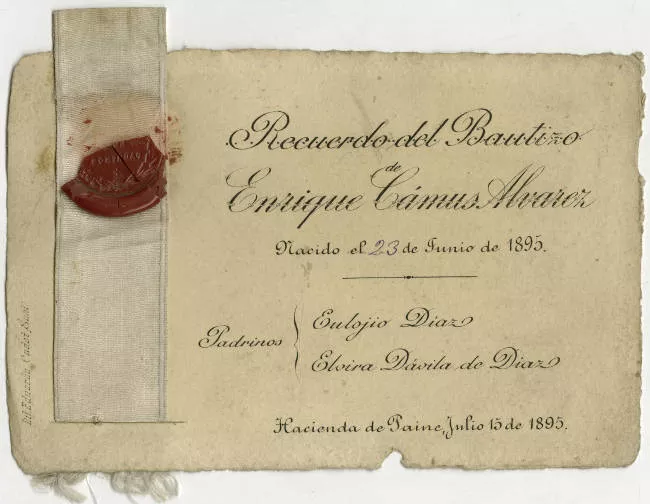 Recuerdo del Bautizo
de
Enrique Cámus Alvarez
Nacido el 23 de Junio de 1895.
Padrinos
Eulojio Diaz
Elvira Dávila de Diaz
Hacienda de Paine, Julio 15 de 1895.